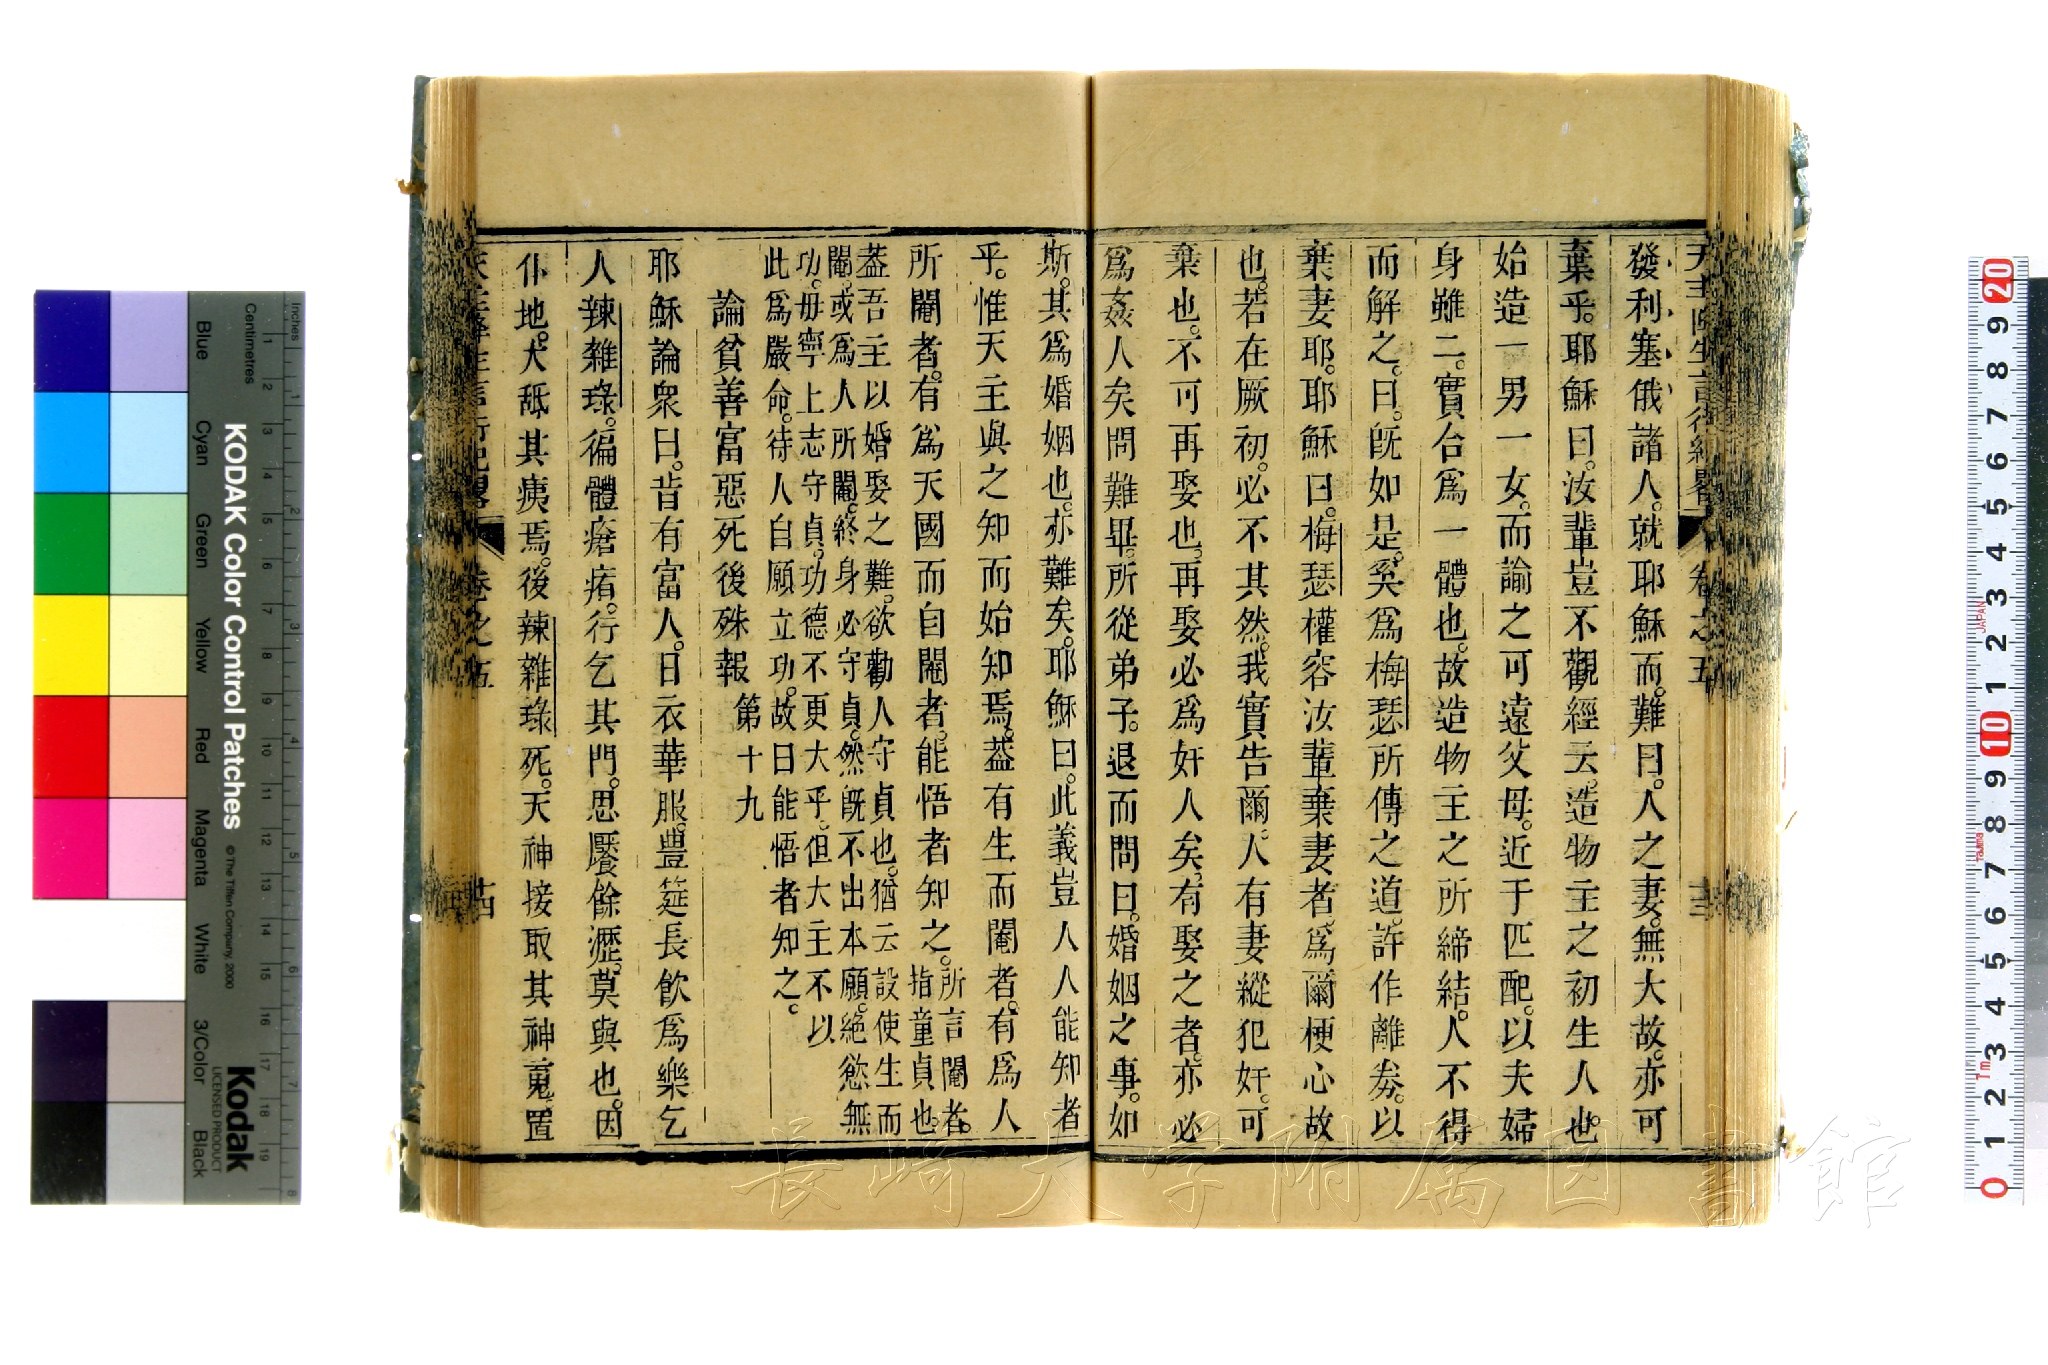 天主降生言行紀畧 卷之五
發利塞俄諸人。就耶穌而。難曰。人之妻。無大故。亦可
棄乎。耶穌曰。汝輩豈不觀經云。造物主之初生人也。
始造一男一女。而諭之可遠父母。近于匹配。以夫婦
身雖二。實合爲一體也。故造物主之所締結。人不得
而解之。曰。旣如是。奚爲梅瑟所傳之道。許作離券。以
棄妻耶。耶穌曰。梅瑟權容汝輩棄妻者。爲爾梗心故
也。若在厥初。必不其然。我實告爾。人有妻縱犯奸。可
棄也。不可再娶也。再娶必爲奸人矣。有娶之者。亦必
爲姦人矣問難畢。所從弟子。退而問曰。婚姻之事。如
斯。其爲婚姻也。亦難矣。耶穌曰。此義豈人人能知者
乎。惟天主與之知而始知焉。葢有生而閹者。有爲人
所閹者。有爲天國而自閹者。能悟者知之。所言閹者。
指童貞也。
葢吾主以婚娶之難。欲勸人守貞也。猶云設使生而
閹。或爲人所閹。終身必守貞。然旣不出本願。絕慾無
功。毋寧上志守貞。功德不更大乎。但大主不以
此爲嚴命。待人自願立功。故曰能悟者知之。
論貧善富惡死後殊報 第十九
耶穌論衆曰。昔有富人。日衣華服。豐筵長飲爲樂乞
人辣雜琭。徧體瘡瘠。行乞其門。思饜餘瀝。莫與也。因
仆地。犬舐其痍焉。後辣雜琭死。天神接取其神䰟。置
天主降生言行紀畧 卷之五 十四
KODAK Color Control Patches
© The Tiffen Company, 2000
Kodak
LICENSED PRODUCT
Inches
Centimetres
Blue
Cyan
Green
Yellow
Red
Magenta
White
3/Color
Black
長崎大学附属図書館
JAPAN